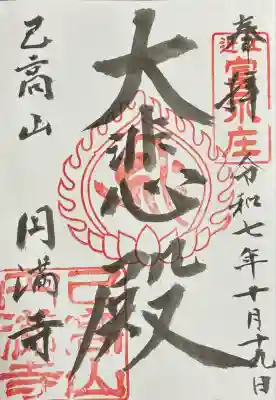 奉拝
令和七年十月十九日
大悲殿
己高山 円満寺
己高山
円満寺